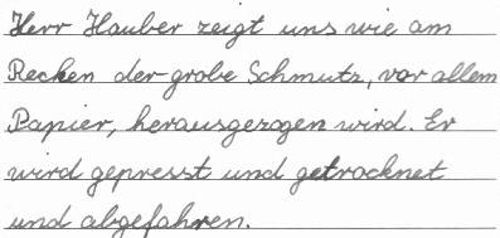 Herr Hauber zeigt uns wie am
Recken der grobe Schmutz, vor allem
Papier, herausgezogen wird. Er
wird gepresst und getrocknet
und abgefahren.